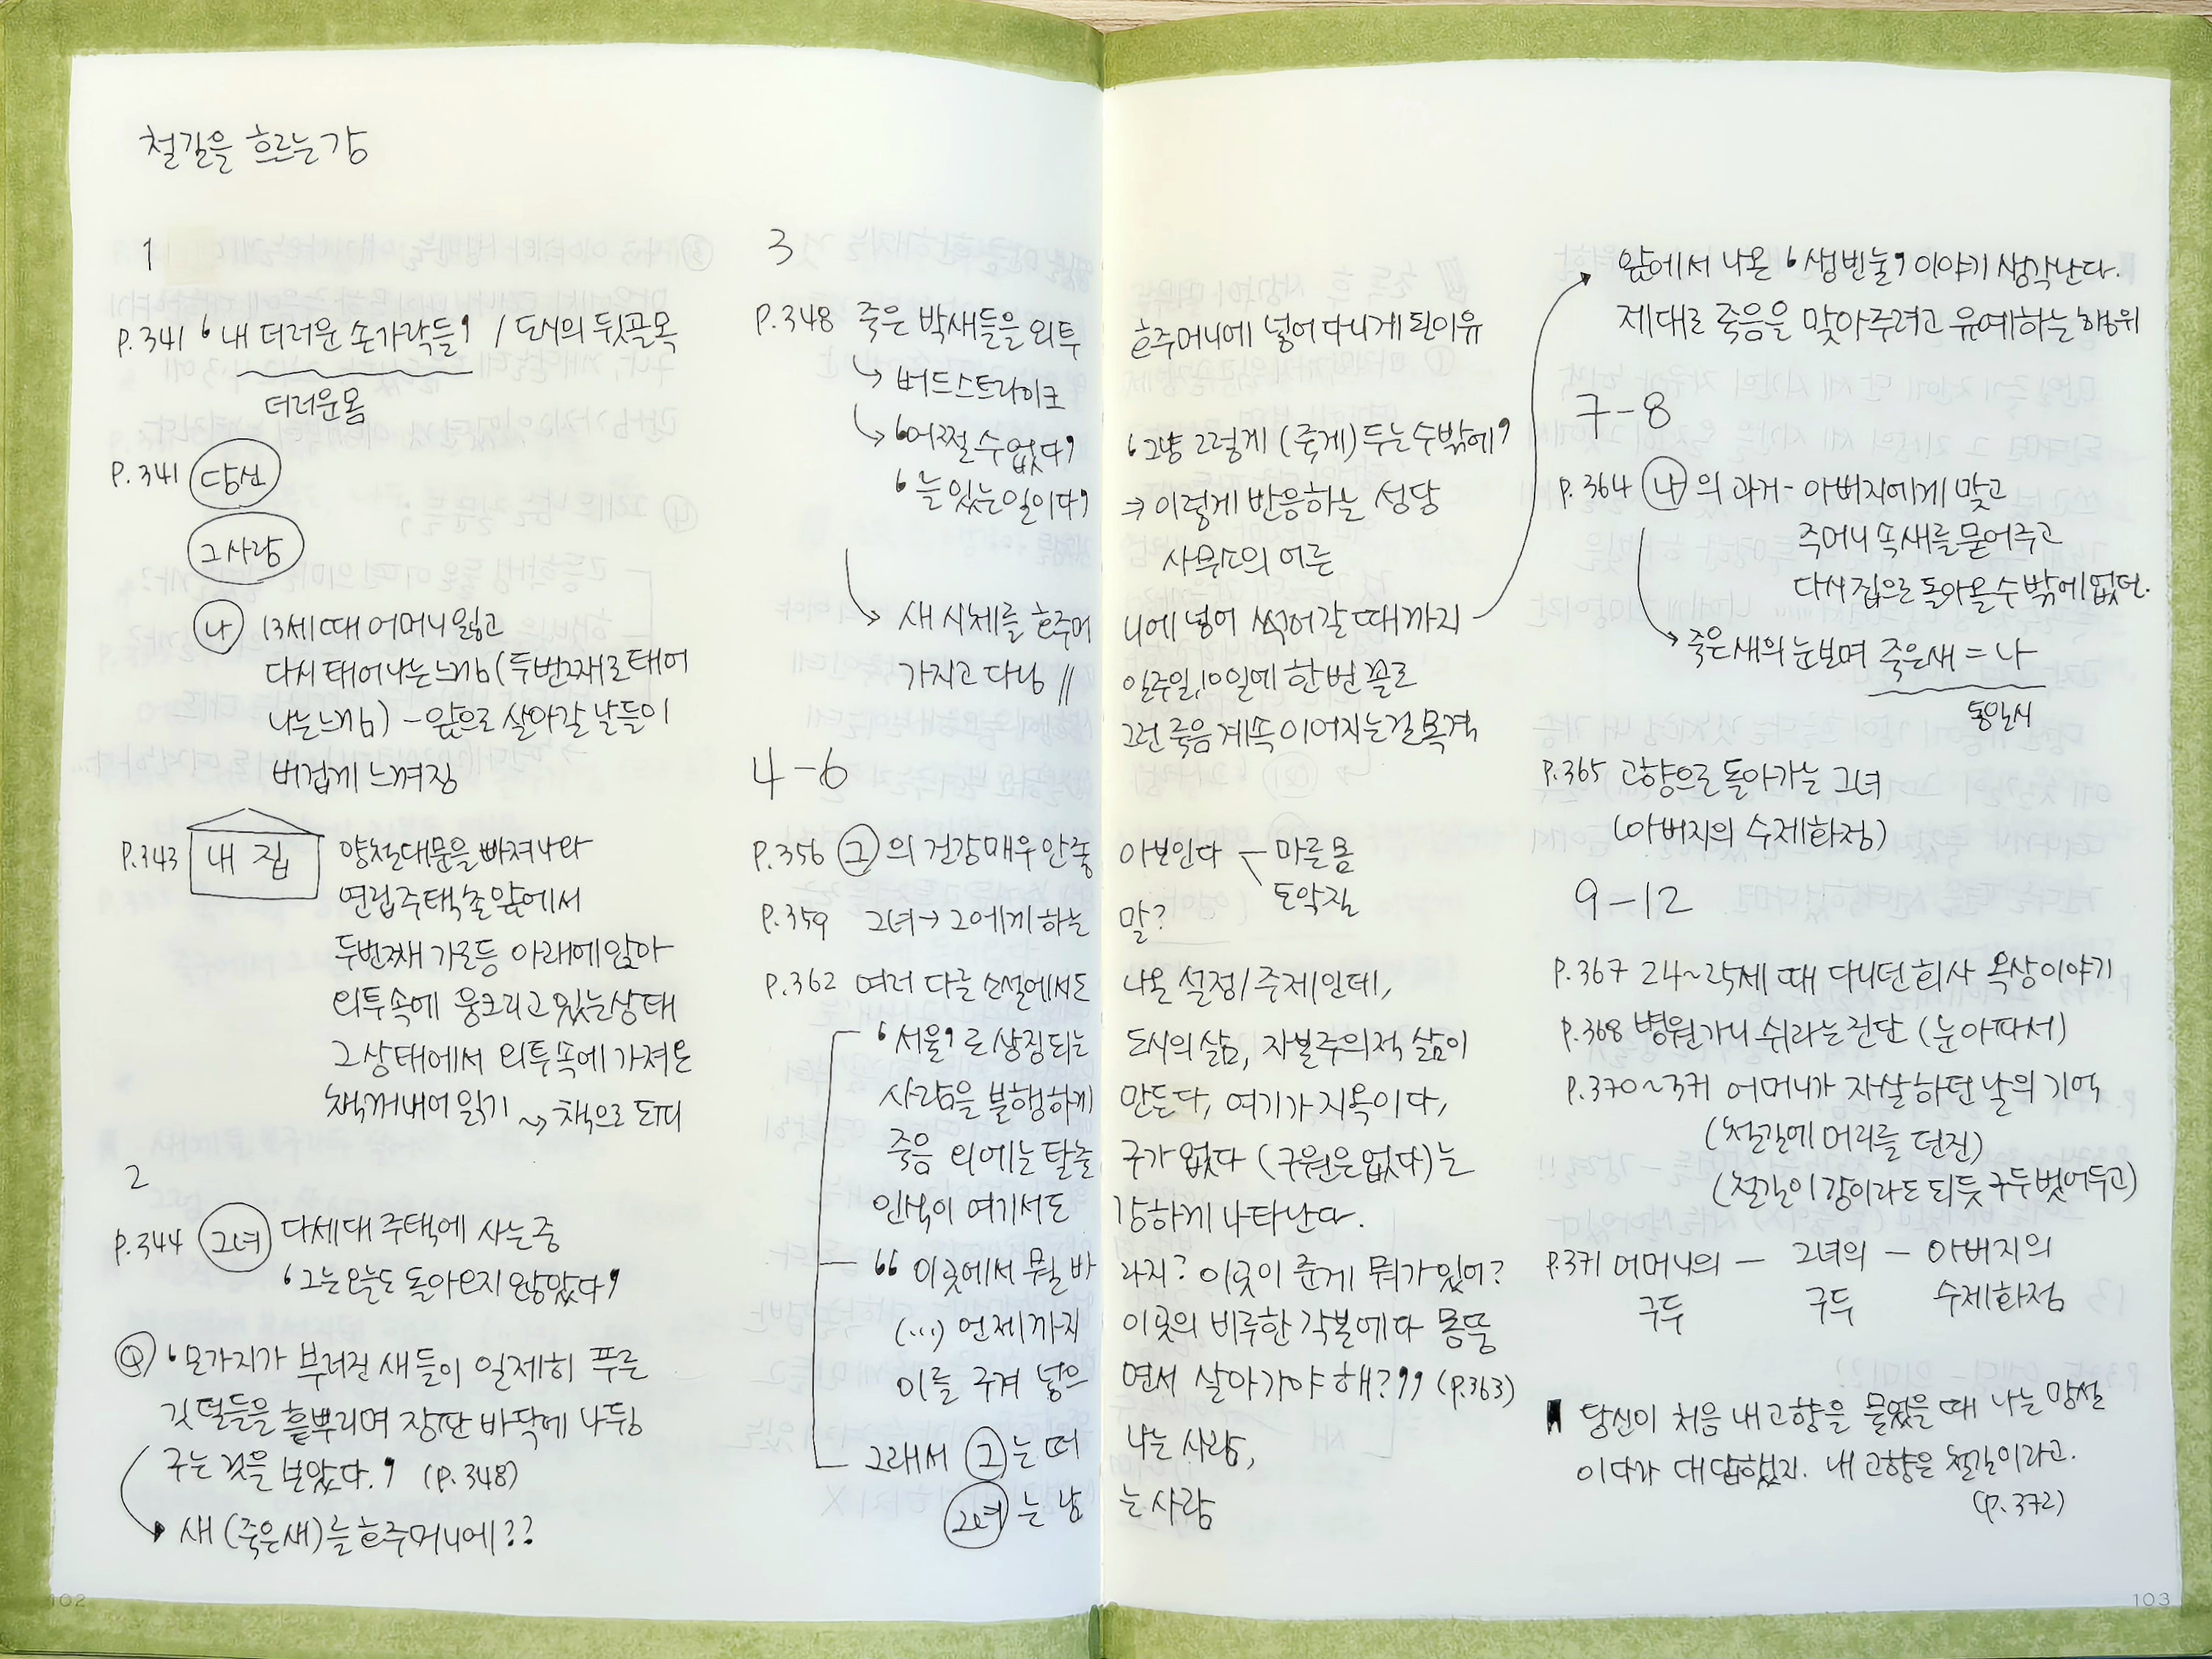 철길을 흐르는 강
1
P.341 '내 더러운 손가락들' / 도시의 뒷골목
더러운 몸
P.341 당신
그 사람
나 13세 때 어머니 잃고
다시 태어나는 느낌 (두번째로 태어
나는 느낌) - 앞으로 살아갈 날들이
버겁게 느껴짐
P.343 내 집 양철대문을 빠져나와
연립주택 촌 앞에서
두번째 가로등 아래에 앉아
외투속에 웅크리고 있는 상태
그 상태에서 외투 속에 가져온
책 꺼내어 읽기 → 책으로 도피
2
P.344 그녀 다세대 주택에 사는 중
'그는 오늘도 돌아오지 않았다'
Q '모가지가 부러진 새들이 일제히 푸른
깃털들을 흩뿌리며 장판 바닥에 나뒹
구는 것을 보았다.' (P.348)
→ 새 (죽은 새)를 호주머니에??
3
P.348 죽은 박새들을 외투 호주머니에 넣어 다니게 된 이유
→ 버드스트라이크
→ '어쩔 수 없다' '그냥 그렇게 (죽게) 두는 수밖에'
'늘 있는 일이다' ⇒ 이렇게 반응하는 성당
사무소의 어른
→ 새 시체를 호주머니에 넣어 썩어갈 때까지
가지고 다님 // 일주일, 10일에 한번 꼴로
그런 죽음 계속 이어지는 걸 목격
4-6
P.356 그의 건강 매우 안 좋아 보인다 - 마른 몸
토악질
P.359 그녀 → 그에게 하는 말?
P.362 여러 다른 소설에서도 나온 설정/주제인데,
'서울'로 상징되는 도시의 삶, 자본주의적 삶이
사람을 불행하게 만든다, 여기가 지옥이다,
죽음 외에는 탈출구가 없다 (구원은 없다)는
인식이 여기서도 강하게 나타난다.
"이곳에서 뭘 바라지? 이곳이 준 게 뭐가 있어?
(...) 언제까지 이곳의 비루한 각본에다 몸뚱
이를 구겨 넣으면서 살아가야 해?" (P.363)
그래서 그는 떠나는 사람,
그녀는 남는 사람
앞에서 나온 '생빈눌' 이야기 생각난다.
제대로 죽음을 맞아주려고 유예하는 행위
7-8
P.364 나의 과거 - 아버지에게 맞고
주머니 속 새를 묻어주고
다시 집으로 돌아올 수 밖에 없던.
→ 죽은 새의 눈 보며 죽은 새 = 나
동일시
P.365 고향으로 돌아가는 그녀
(아버지의 수제화점)
9-12
P.367 24~25세 때 다니던 회사 옥상 이야기
P.368 병원 가니 쉬라는 진단 (눈 아파서)
P.370~371 어머니가 자살하던 날의 기억
(철길에 머리를 던진)
(철길이 강이라도 되듯 구두 벗어두고)
P.371 어머니의 - 그녀의 - 아버지의
구두 구두 수제화점
당신이 처음 내 고향을 물었을 때 나는 망설
이다가 대답했지. 내 고향은 철길이라고.
(P.372)
102
103